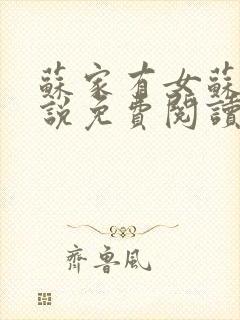 蘇家有女蘇
說免費閱讀
齊魯風